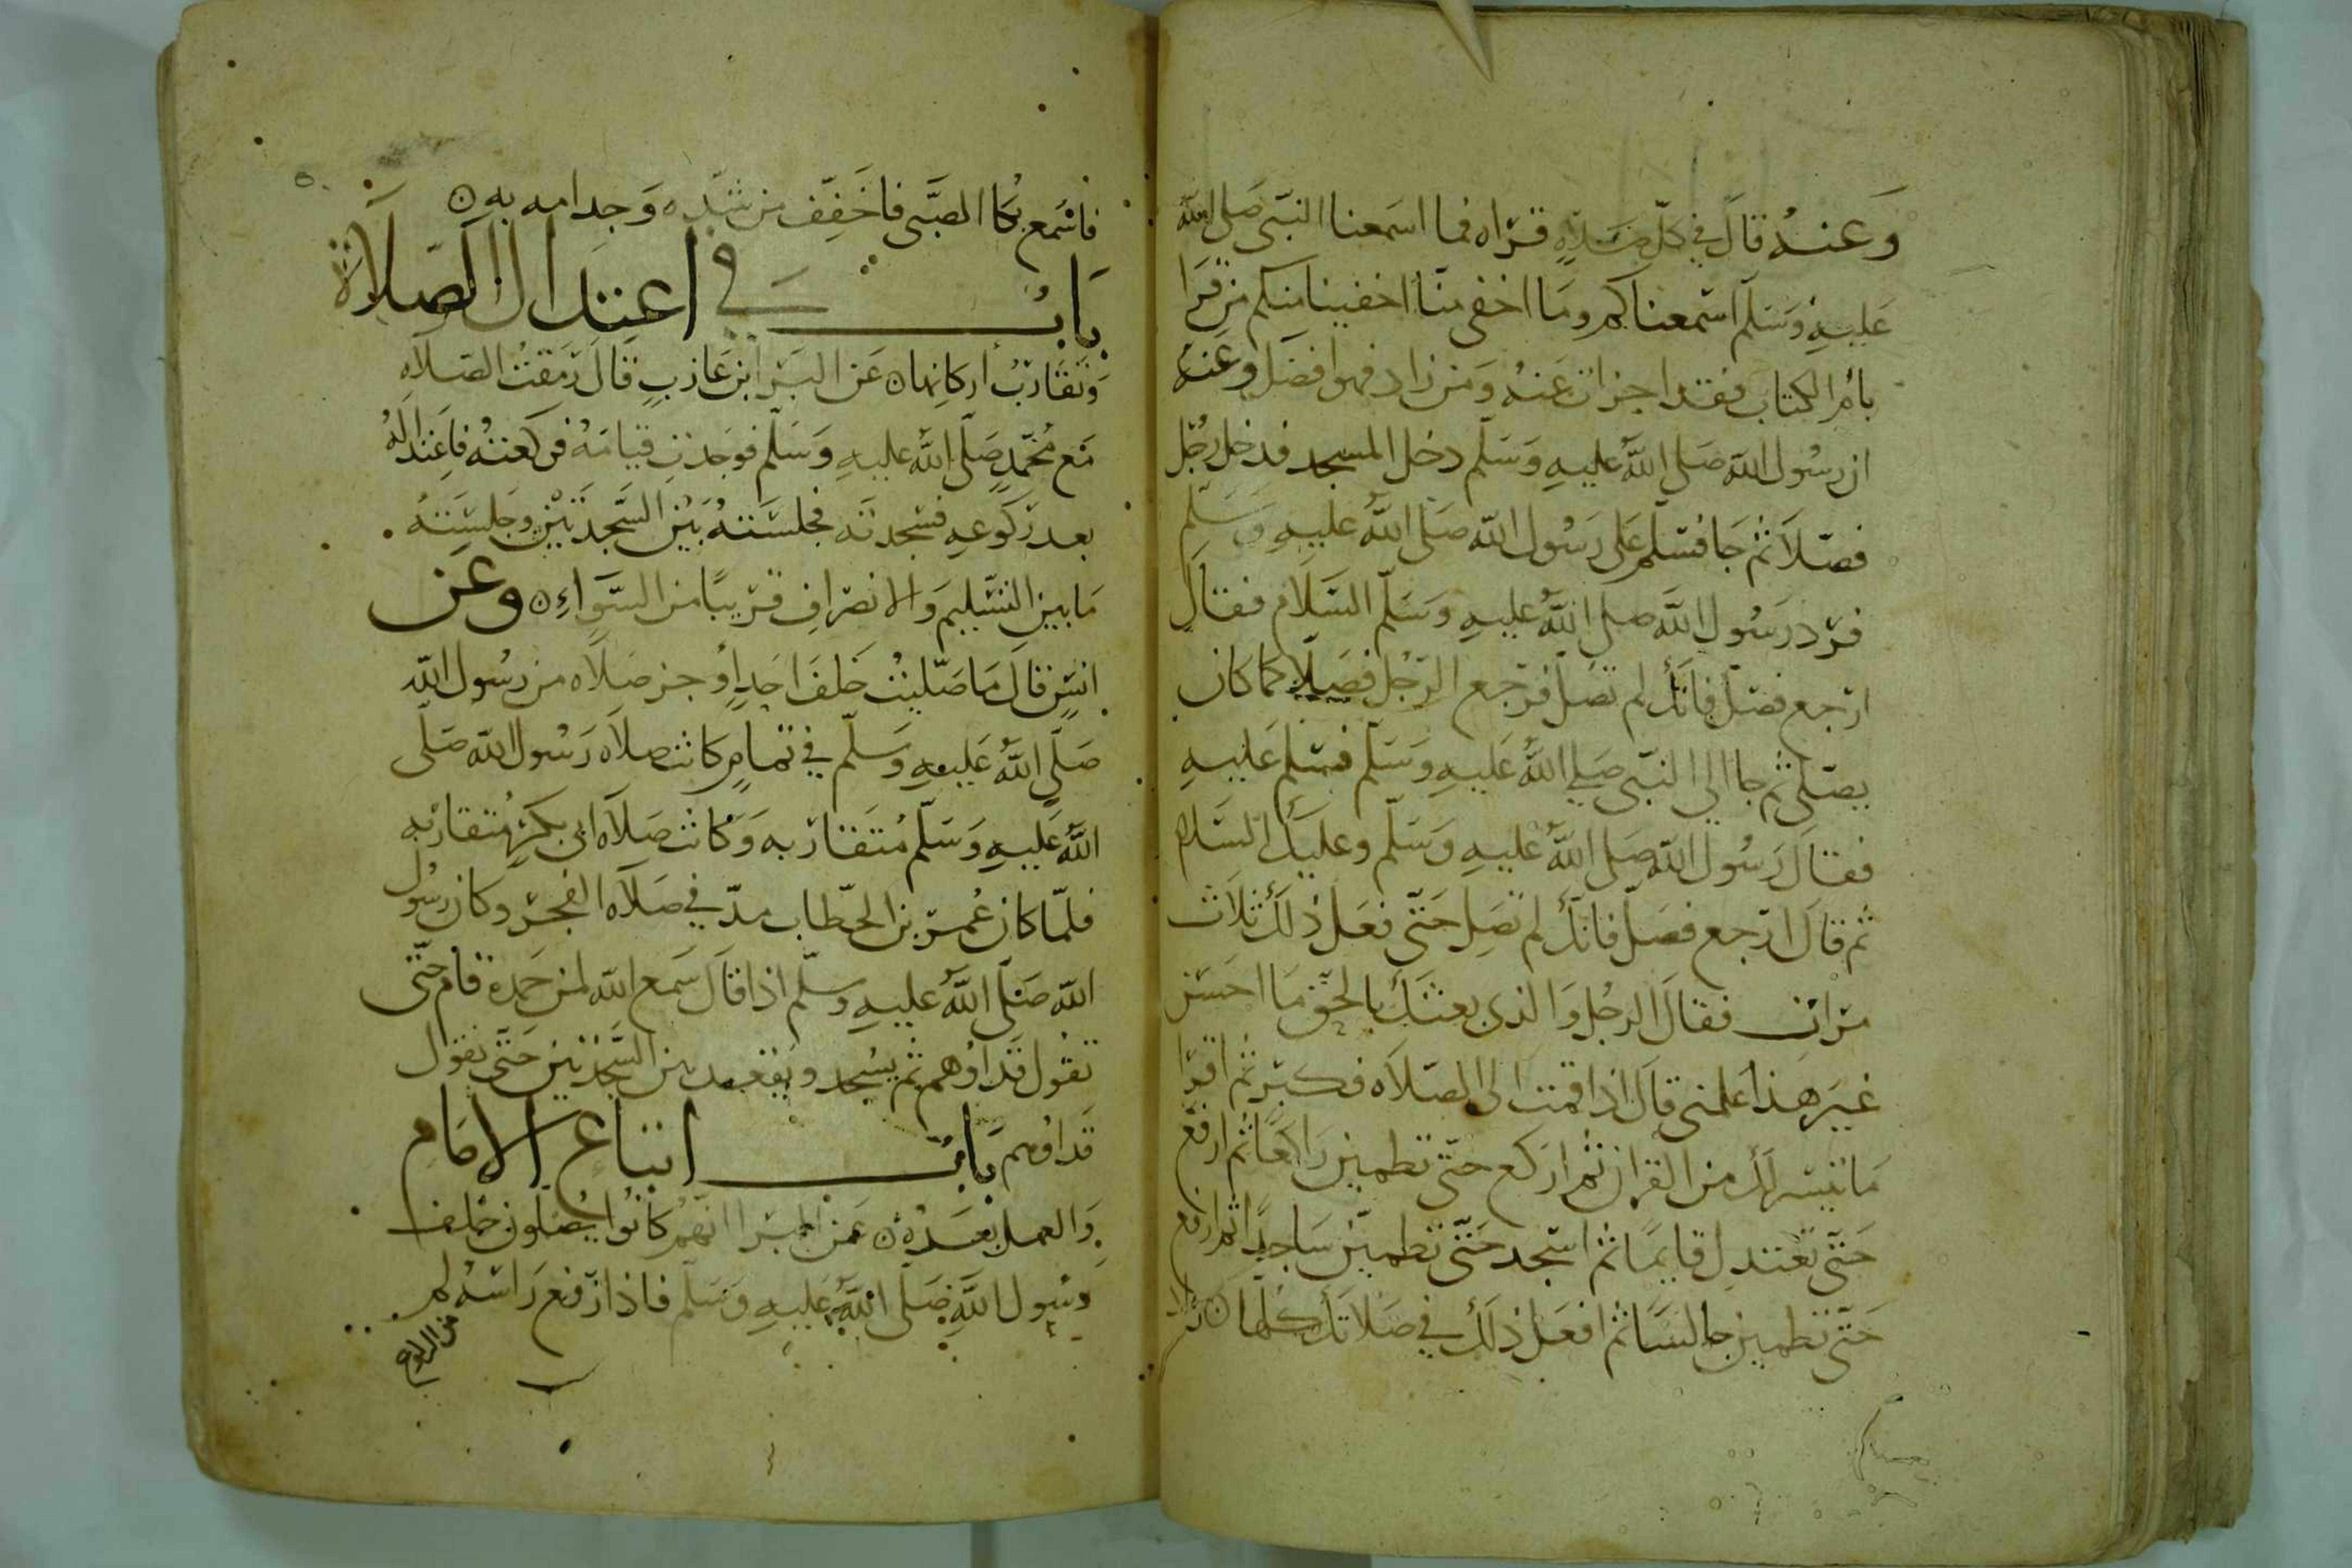 وَعَنهُ قالَ في كلّ صَلاهٍ قراه فما اسمعنا النبّى صَلى الله
عَليهِ وَسَلّم اسمعناكم ومَا اخفى منّا اخفينا منكم مَن قرَا
بام الكتاب فقد اجزات عَنهُ وَمن زاد فهوا افضَل وعَنهُ
ان رسُول الله صَلى اللهُ عليهِ وَسَلّم دخل المسجد فدخل رجُل
فصَلاَ ثم جَا فسَلم عَلى رَسُول الله صَلى اللهُ عليهِ وَسَلّم
فردّ رَسُول اللهَ صلى اللهُ عليهِ وَسَلّم السَلام فقال
ارجع فصَلّ فانكَ لم تصَل فرَجع الرجُل فصَلا كما كان
يصَلى ثم جا الى النبّى صَلى اللهُ عَليهِ وَسَلّم فسَلم عَليهِ
فقالَ رَسُول الله صَلى اللهُ عليهِ وَسَلّم وعليكَ السَلام
ثم قالَ ارجع فصَلّ فانكَ لم تصَلِ حَتّى فعَل ذلكَ ثلاث
مرّاتٍ فقالَ الرجُل وَالذى بعثكَ بالحقّ مَا احسَن
غيَر هذا علمنى قالَ اذا قمت الى الصَلاه فكبّر ثم اقرا
مَا تيسّر لكَ من القران ثم اركع حتّى تطمين رَاكعًا ثم ارفع
حَتّى تعتدل قايمًا ثم اسجد حَتّى تطمين سَاجدًا ثم ارفع
حَتّى تطمين جالسًا ثم افعَل ذلكَ في صَلاتكَ كلها
فاسْمع بكا الصبَّى فاخَفِّف من شدّه وَجد امه به
بَابُ في اعتدال الصَلاَة
وَتقَارُب اركانها عَن البَرا بن عَازبٍ قالَ رَمَقتُ الصَلاَه
مَع مُحَمّدٍ صَلّى اللهُ عليهِ وَسَلّم فوَجَدت قيامَهُ فركعتهُ فاعتدالهُ
بعد رَكوعهِ فسجدته فجلسَتهُ بَيْن السَّجدَتَيْن وجَلسَتهُ
مَا بين التسَليم وَالانصَرافِ قريبًا من السَّوَاءِ وعَن
انسٍ قالَ مَا صَلّيتُ خَلفَ احَدٍ أوجز صَلاَه من رسُول الله
صَلّى اللهُ عَليهِ وَسَلّم في تمامٍ كانت صَلاَه رَسُول الله صَلّى
اللهُ عَليهِ وَسَلّم مُتقَاربه وَكانت صَلاَه ابى بكرٍ مُتقاربه
فلمّا كان عُمَر بن الخطّاب مدّ في صَلاَه الفجر وكان رسُول
الله صَلّى اللهُ عليهِ وسلّم اذا قالَ سَمع الله لمن حَمده قام حَتّى
نقول قَد اوْهم ثم يسْجد ويقعد بين السَّجدتين حَتّى نقول
قَد اوْهم بَابُ اتباع الامَام
وَالعمل بعَدهُ عَن البرا انهُم كانُوا يُصَلون خلف
رسُول اللهِ صَلّى اللهُ عَليهِ وَسَلّم فاذا رَفع رَاسَهُ لم
من الركوع